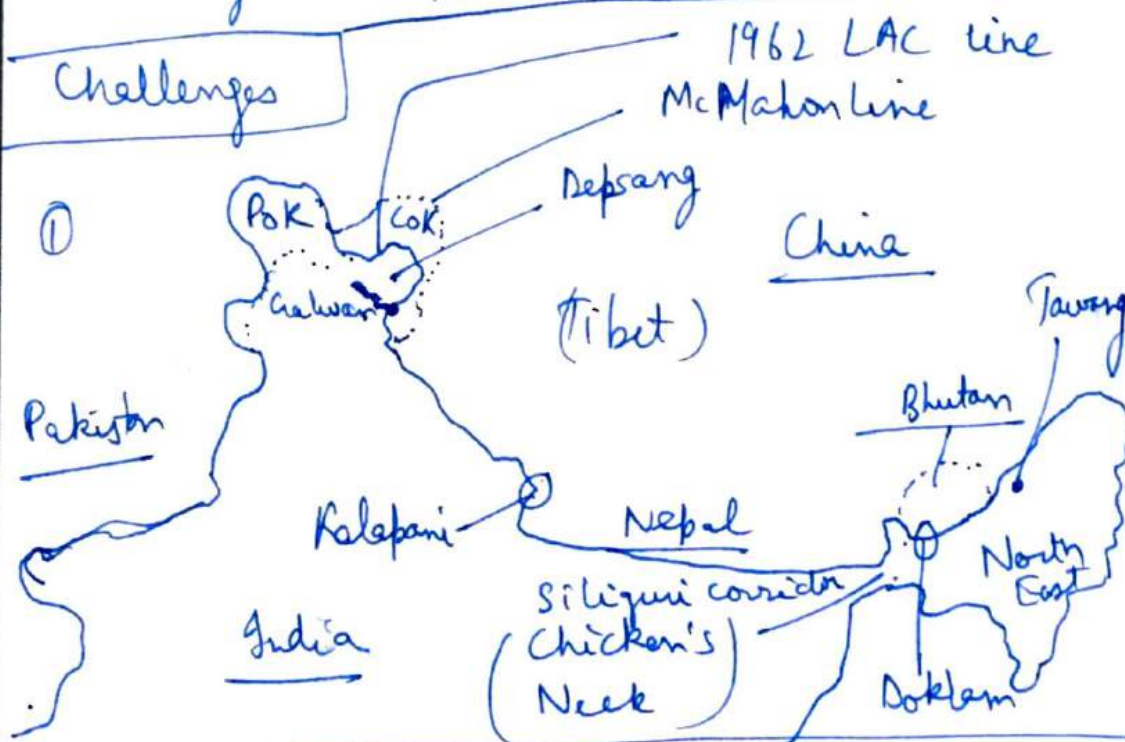 Challenges
1962 LAC line
McMahon Line
Depsang
①
PoK
CoK
China
Galwan
(Tibet)
Tawang
Pakistan
Bhutan
Kalapani
Nepal
North
East
Siliguri corridor
India
(Chicken's
Neck)
Doklam